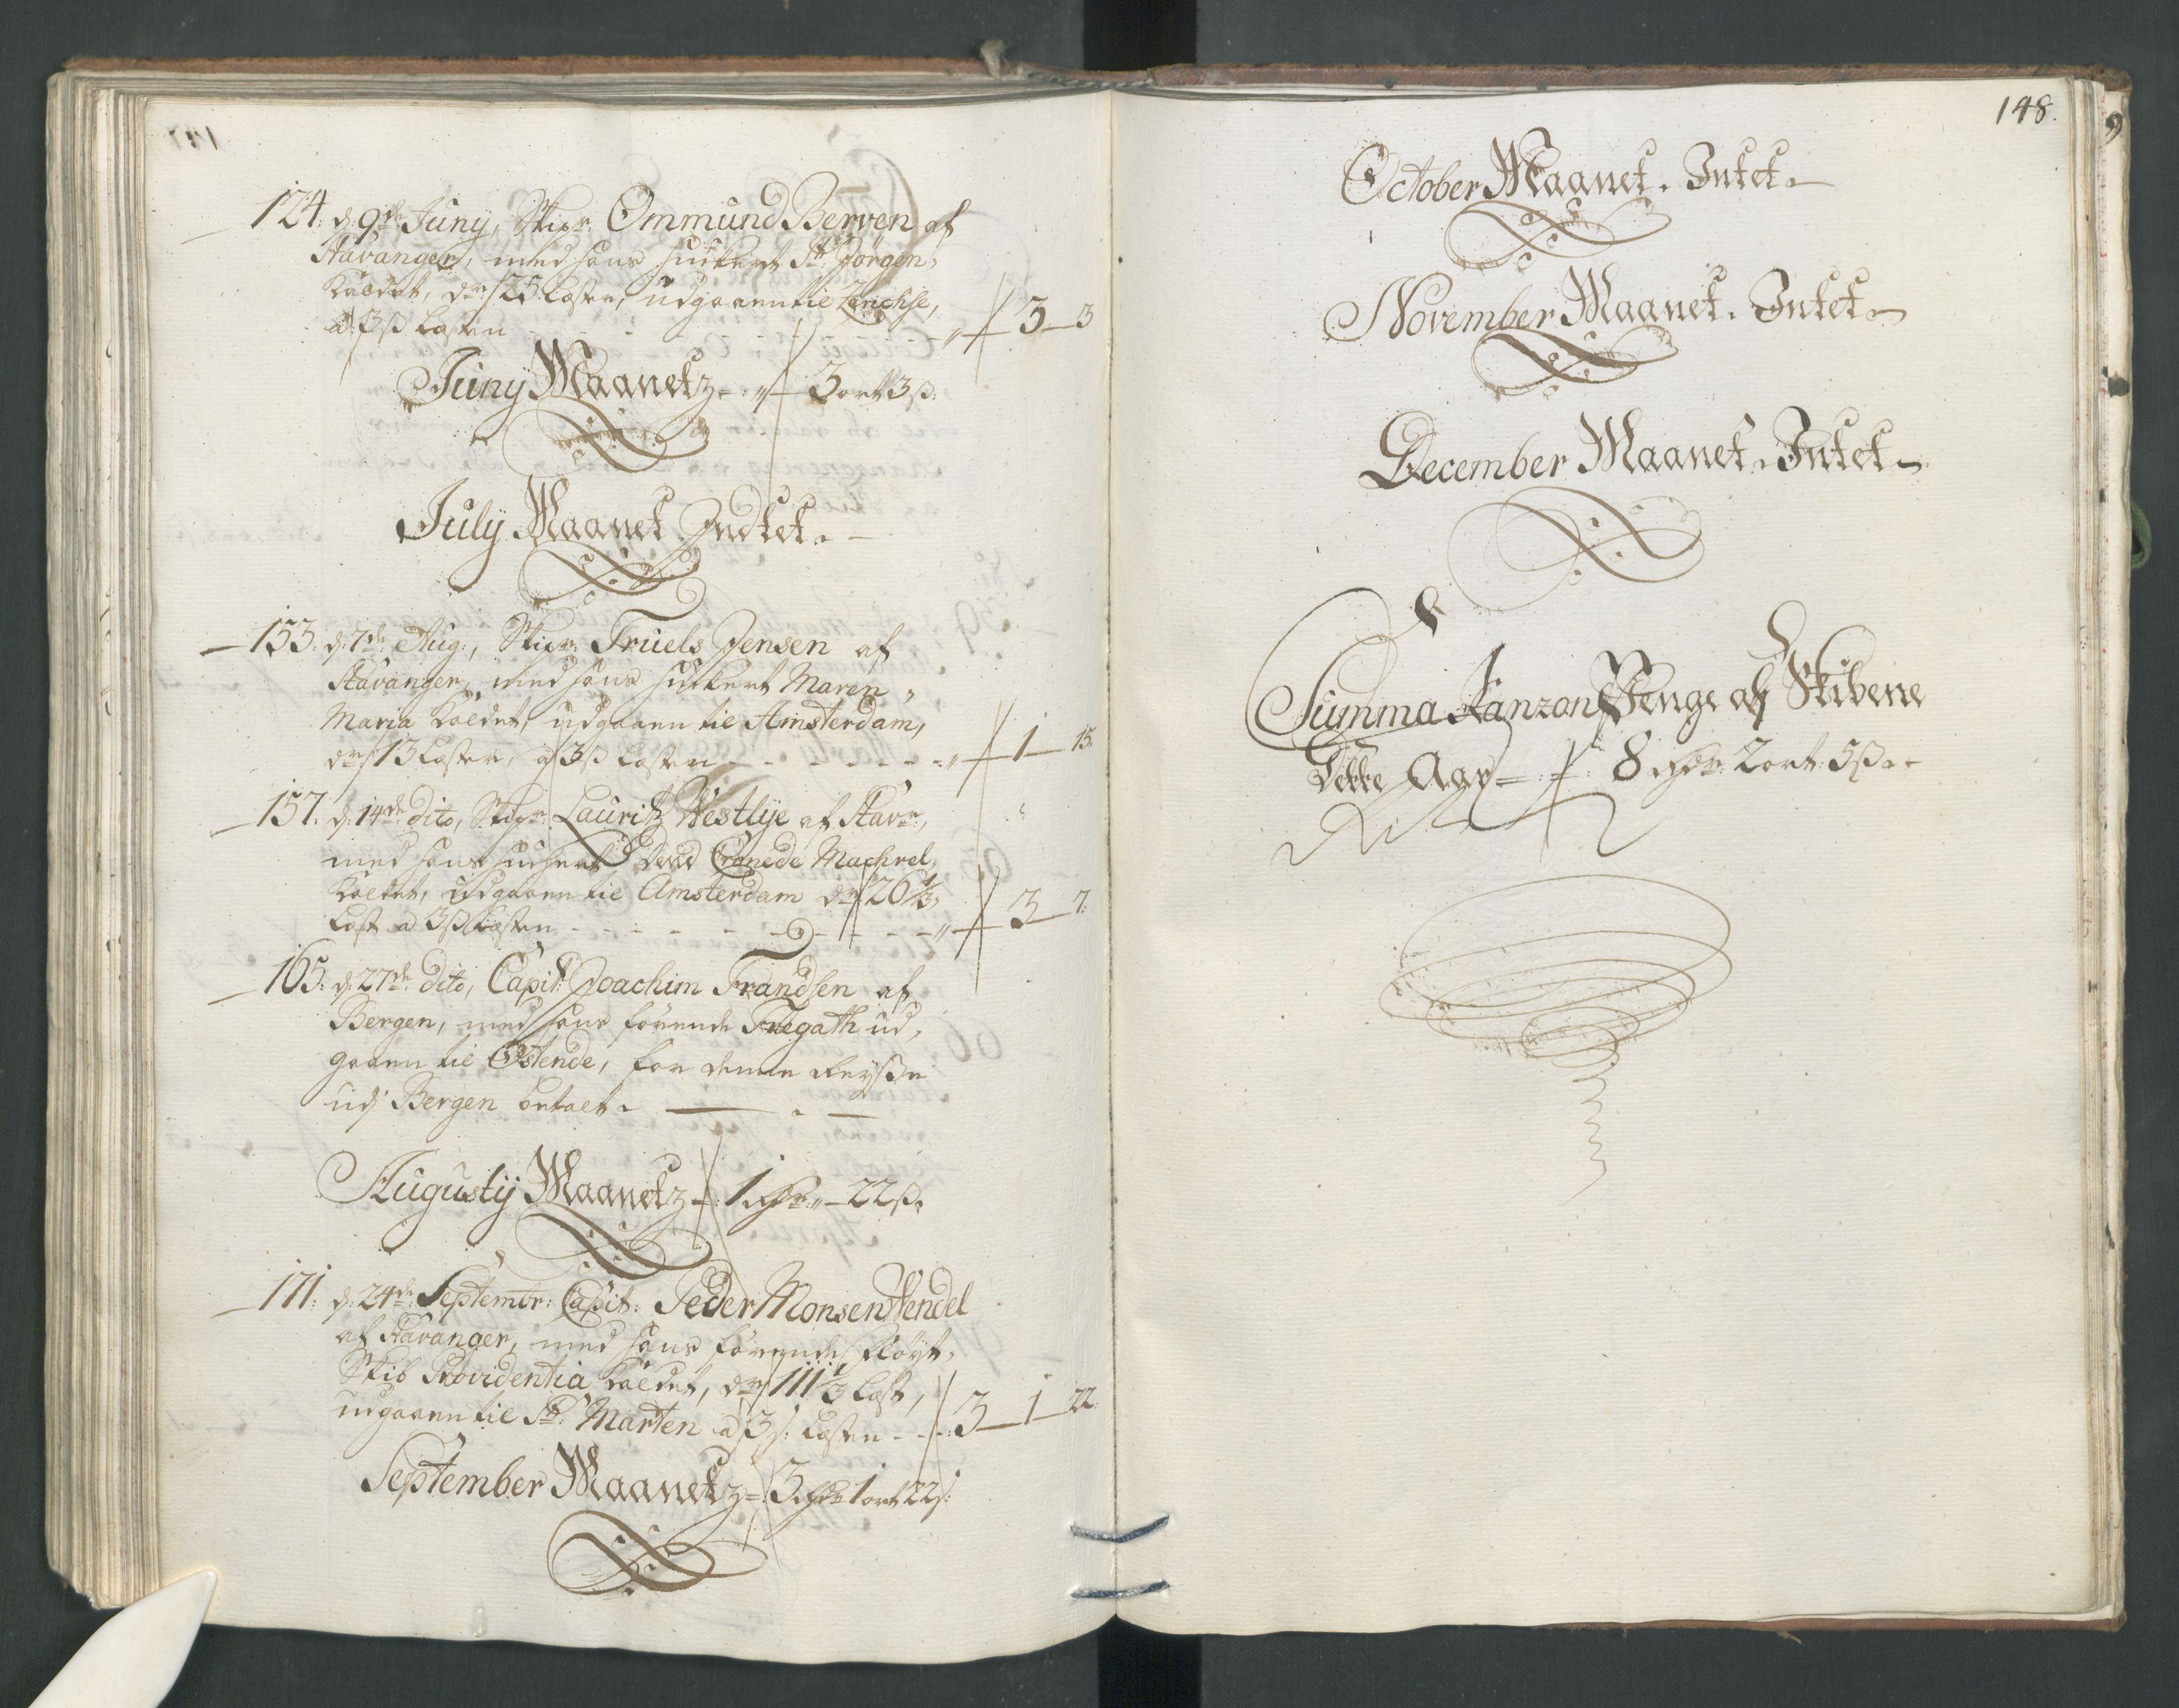 124. d: 9de Juny, Skipr. Ommund Berven af
Stavanger, med hans Huckert St. Jörgen,
kaldet, dr: 25 Læster, udgaaen til
a 3ß Læsten - - - - „ 3 3
Juny Maanetz - „ 3 ort 3ß.
July Maanet Indtet.
153. d: 7de Aug:, Skipr. Truels Jensen af
Stavanger, med hans Huckert Maren
Maria kaldet, udgaaen til Amsterdam,
dr: 13 Læster, a 3ß Læsten - - - - „ 1 15.
157. d: 14de dito, Skipr. Lauritz Westlye af Stavr:,
med hans Huckert Cronede Machrel,
kaldet, udgaaen til Amsterdam dr: 26 1/3,
Læst a 3ß Læsten - - - - „ 3 7.
165. d: 27de dito, Capit: Joachim Frandsen af
Bergen, med hans förende Fregath ud,
gaaen til Ostende, for denne Reyße
udj Bergen betalt.
Augusty Maanetz - 1 Rdr. „ 22ß.
171. d: 24de Septembr: Capit: Peder Monsen Wendel
af Stavanger, med hans förende Fløyt,
Skib Providentia kaldet, dr: 111 1/3 Læst,
udgaaen til St: Marten a 3ß: Læsten - - - 3 1 22.
September Maanetz = 3 Rdr 1 ort 22ß
148.
October Maanet. Intet.
November Maanet. Intet.
December Maanet. Intet.
Summa Ranzon Penge af Skibene
Dette Aar = 8 Rdr: 2 ort: 5ß.